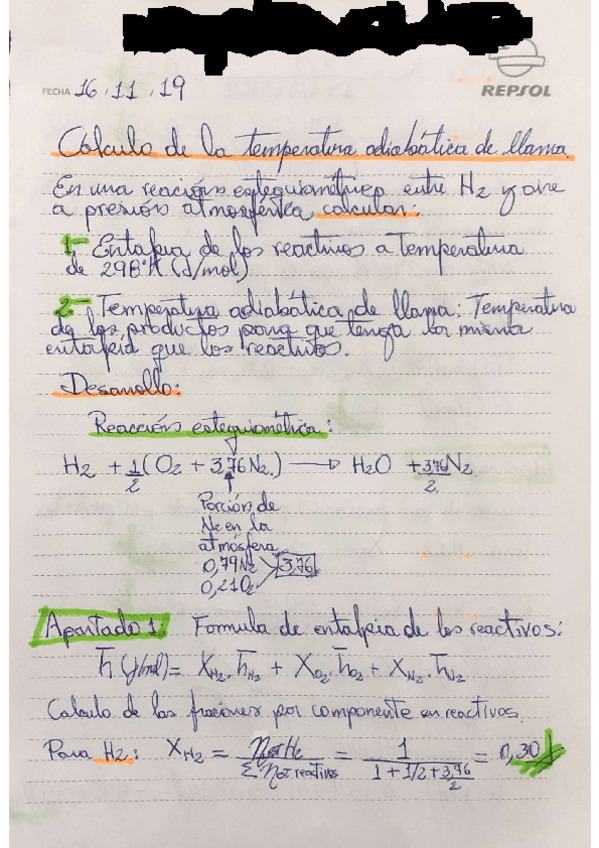 FECHA 16.11.19
REPSOL
Cálculo de la temperatura adiabática de llama.
En una reacción estequiométrica entre H₂ y aire
a presión atmosférica, calcular:
1- Entalpia de los reactivos a temperatura
de 298°K (J/mol)
2- Temperatura adiabática de llama: Temperatura
de los productos para que tenga la misma
entalpía que los reactivos.
Desarrollo:
Reacción estequiométrica:
H₂ + 1/2 (O₂ + 3,76N₂) → H₂O + 3,76/2 N₂
Porción de
N₂ en la
atmósfera
0,79N₂ 3,76
0,21O₂
Apartado 1: Formula de entalpia de los reactivos:
h̄ (J/mol) = X_H₂ · h̄_H₂ + X_O₂ · h̄_O₂ + X_N₂ · h̄_N₂
Calculo de las fracciones por componente en reactivos.
Para H₂: X_H₂ = n de H₂ / Σ n de reactivos = 1 / (1 + 1/2 + 3,76/2) = 0,30